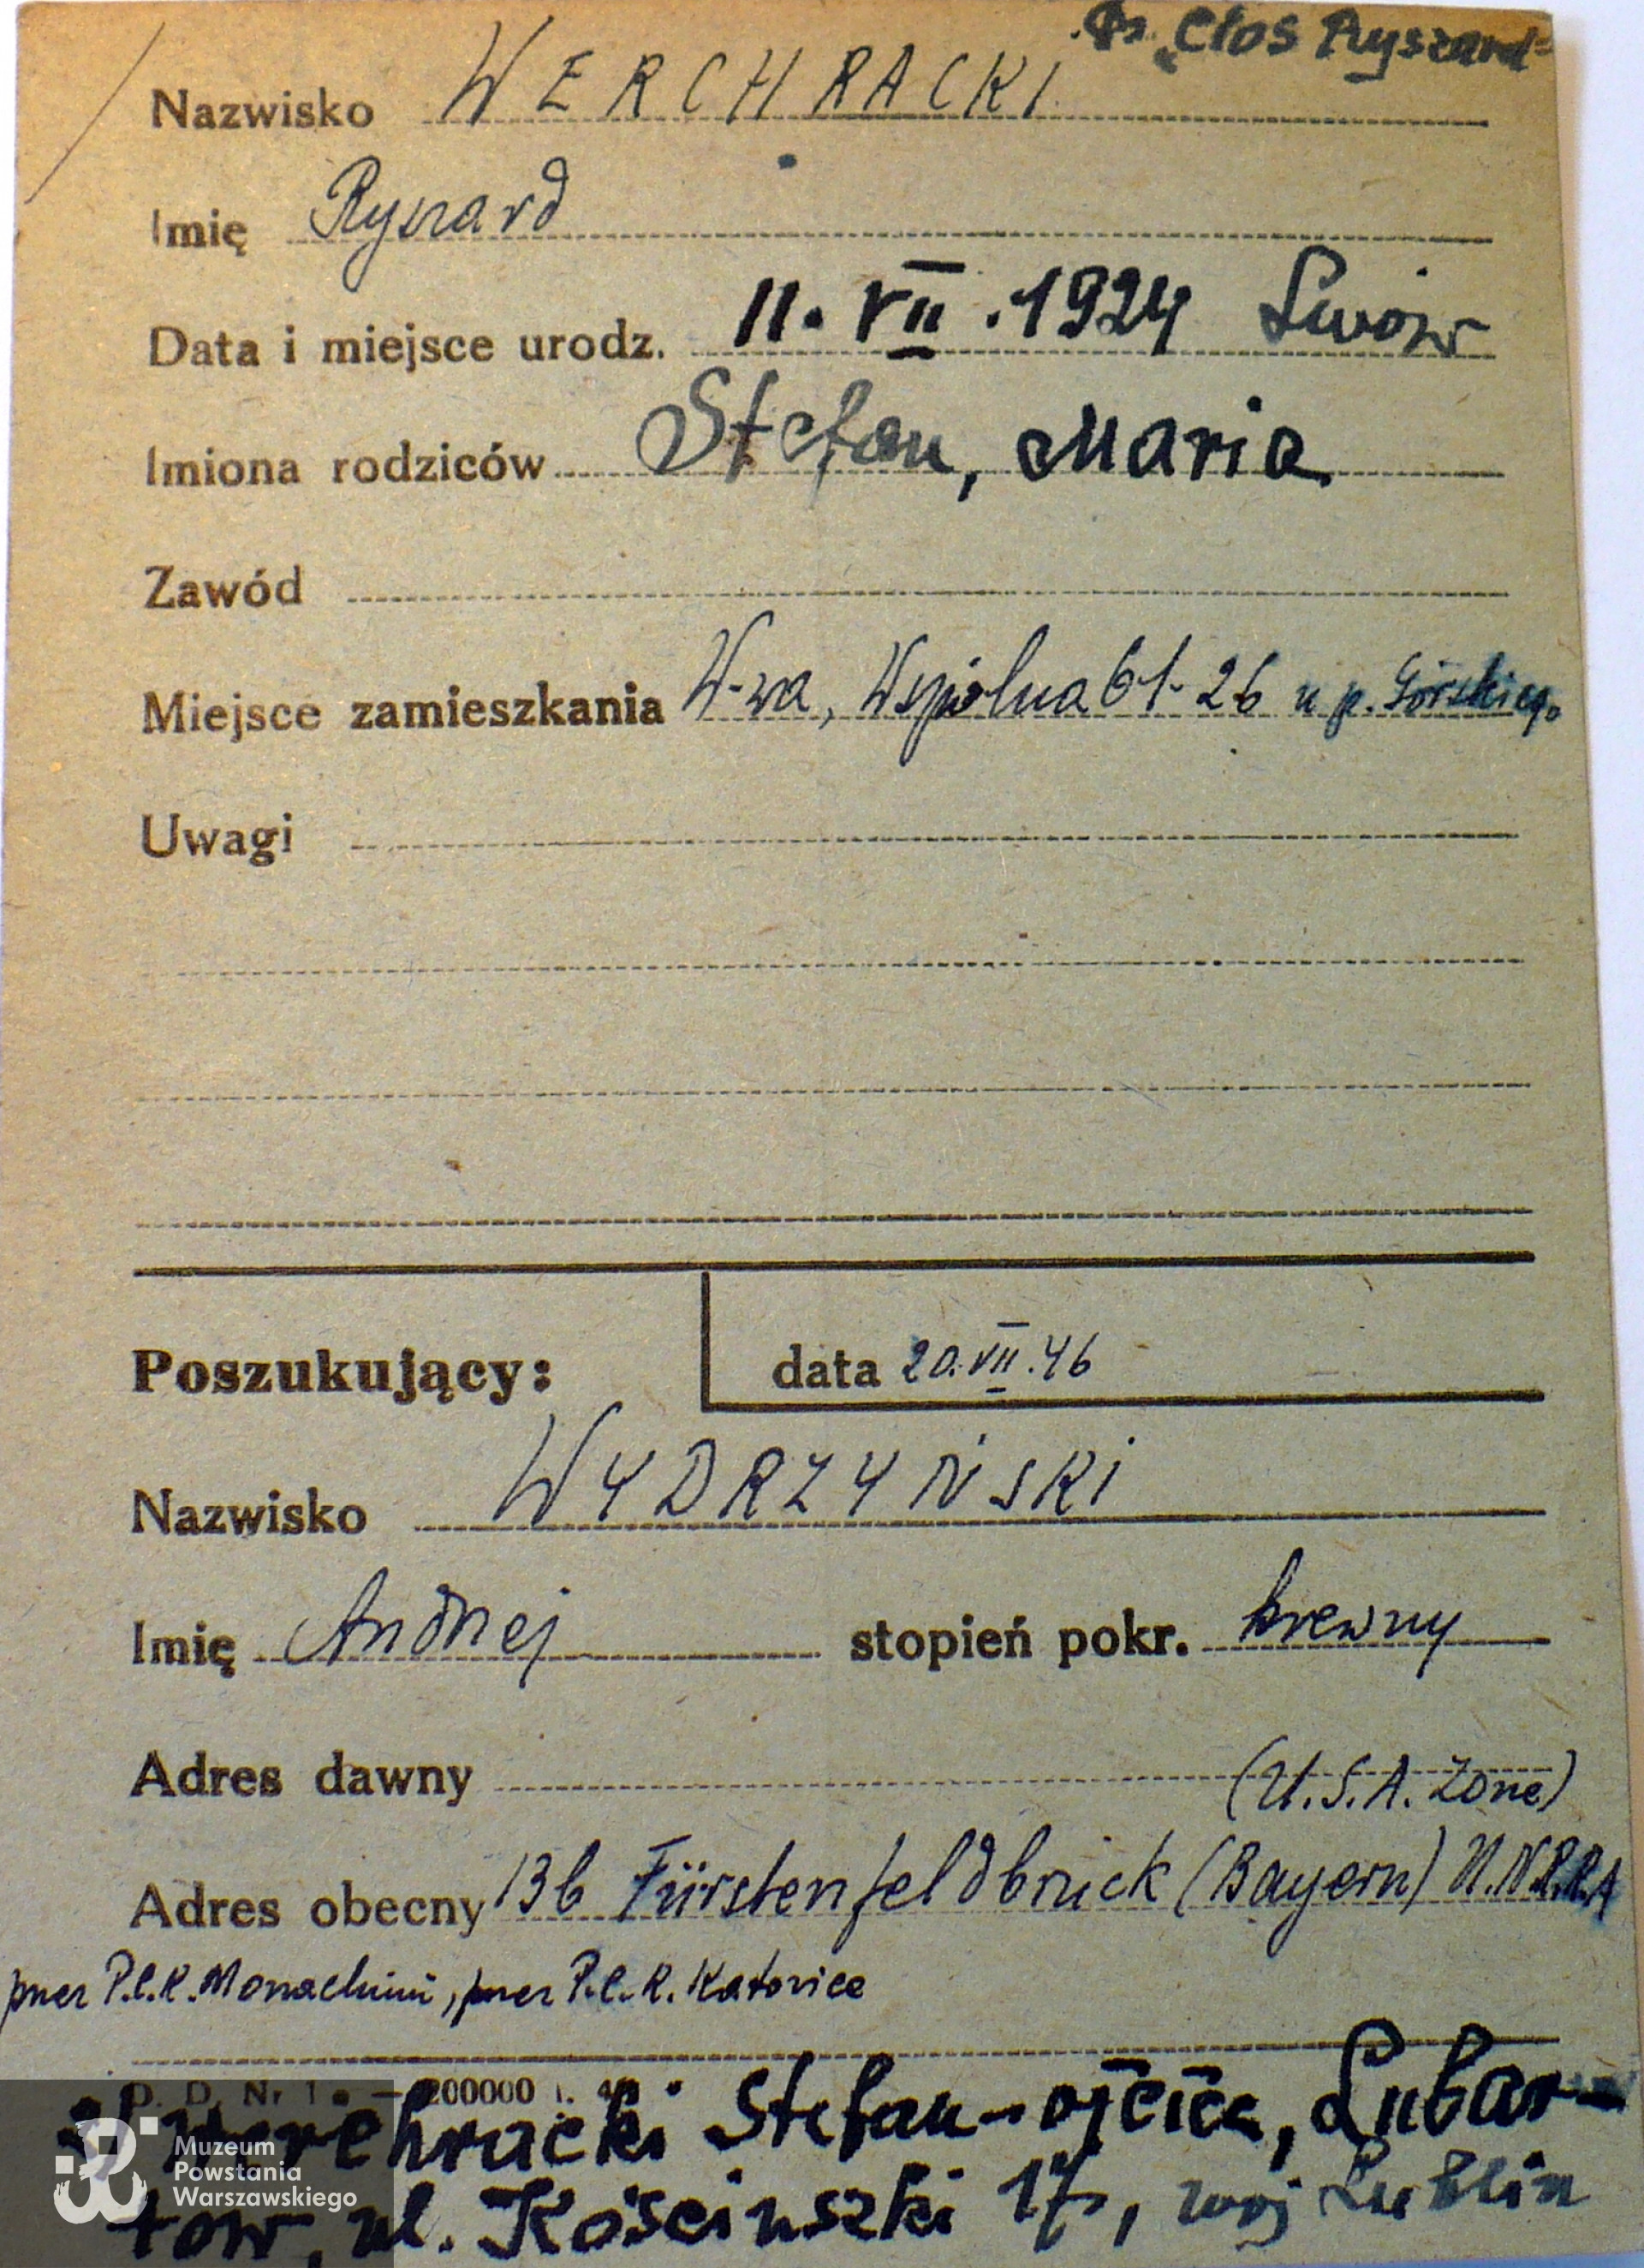 Ps. „Cios Ryszard"
Nazwisko WERCHRACKI
Imię Ryszard
Data i miejsce urodz. 11. VII. 1924 Lwów
Imiona rodziców Stefan, Maria
Zawód
Miejsce zamieszkania W-wa, Wspólna 61-26 u p. Górskiego
Uwagi
Poszukujący: data 20.VII.46
Nazwisko WYDRZYŃSKI
Imię Andrzej stopień pokr. krewny
Adres dawny (U.S.A. Zone)
Adres obecny 13b Fürstenfeldbruck (Bayern) U.N.R.R.A
przez P.C.K. Monachium, przez P.C.K. Katowice
P. D. Nr 1 200000
Werchracki Stefan - ojciec, Lubar-
tow, ul. Kościuszki 17, woj Lublin
Muzeum
Powstania
Warszawskiego